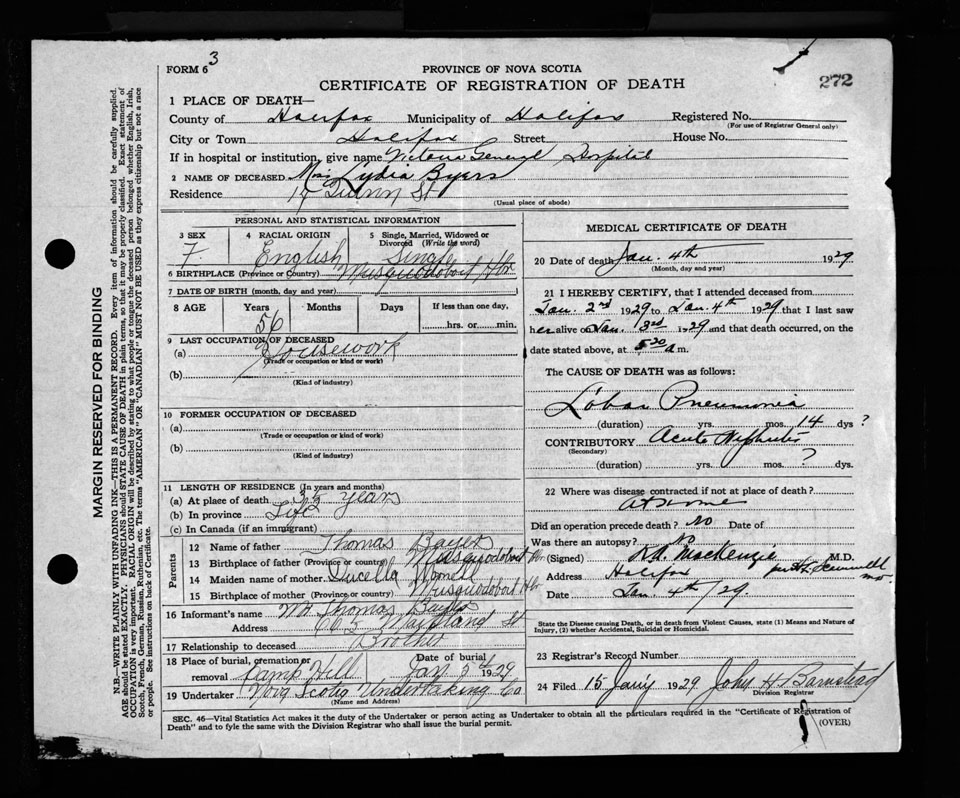 3
FORM 6
PROVINCE OF NOVA SCOTIA
CERTIFICATE OF REGISTRATION OF DEATH
272
1 PLACE OF DEATH—
County of Halifax Municipality of Halifax Registered No.
(For use of Registrar General only)
City or Town Halifax Street House No.
If in hospital or institution, give name Victoria General Hospital
2 NAME OF DECEASED Miss Lydia Byers
Residence 17 Quinn St
(Usual place of abode)
PERSONAL AND STATISTICAL INFORMATION
3 SEX 4 RACIAL ORIGIN 5 Single, Married, Widowed or Divorced (Write the word)
F. English Single
6 BIRTHPLACE (Province or Country) Musquodoboit Hbr
7 DATE OF BIRTH (month, day and year)
8 AGE Years Months Days If less than one day,
56 hrs. or min.
9 LAST OCCUPATION OF DECEASED
(a) Housework
(Trade or occupation or kind or work)
(b)
(Kind of industry)
10 FORMER OCCUPATION OF DECEASED
(a)
(Trade or occupation or kind of work)
(b)
(Kind of industry)
11 LENGTH OF RESIDENCE (In years and months)
(a) At place of death years
(b) In province Life
(c) In Canada (if an immigrant)
Parents
12 Name of father Thomas Bayers
13 Birthplace of father (Province or country) Musquodoboit Hr.
14 Maiden name of mother
15 Birthplace of mother (Province or country) Musquodoboit Hbr
16 Informant's name Mr Thomas Bayers
Address Maitland St
17 Relationship to deceased Brother
18 Place of burial, cremation or removal Camp Hill Date of burial Jan 5th 1929
19 Undertaker Nova Scotia Undertaking Co
(Name and Address)
MEDICAL CERTIFICATE OF DEATH
20 Date of death Jan. 4th 1929
(Month, day and year)
21 I HEREBY CERTIFY, that I attended deceased from
Jan. 2nd 1929 to Jan. 4th 1929 that I last saw
her alive on Jan. 3rd 1929 and that death occurred, on the
date stated above, at 5.20 a m.
The CAUSE OF DEATH was as follows:
Lobar Pneumonia
(duration) yrs. mos. 14 dys ?
CONTRIBUTORY Acute Nephritis
(Secondary)
(duration) yrs. mos. ? dys.
22 Where was disease contracted if not at place of death?
At home
Did an operation precede death? No Date of
Was there an autopsy? No
(Signed) MacKenzie M.D.
Address Halifax
Date Jan. 4th /29.
State the Disease causing Death, or in death from Violent Causes, state (1) Means and Nature of
Injury, (2) whether Accidental, Suicidal or Homicidal.
23 Registrar's Record Number
24 Filed 15 Jan'y 1929 John H Barnstead
Division Registrar
SEC. 46—Vital Statistics Act makes it the duty of the Undertaker or person acting as Undertaker to obtain all the particulars required in the "Certificate of Registration of
Death" and to fyle the same with the Division Registrar who shall issue the burial permit.
(OVER)
MARGIN RESERVED FOR BINDING
N.B.—WRITE PLAINLY WITH UNFADING INK—THIS IS A PERMANENT RECORD. Every item of information should be carefully supplied.
AGE should be stated EXACTLY. PHYSICIANS should STATE CAUSE OF DEATH in plain terms, so that it may be properly classified. Exact statement of
OCCUPATION is very important. RACIAL ORIGIN will be described by stating to what people or tongue the deceased person belonged whether English, Irish,
Scotch, French, German, Russian, Ruthenian, etc. The terms "AMERICAN" OR "CANADIAN" MUST NOT BE USED as they express citizenship but not a race
or people. See instructions on back of Certificate.